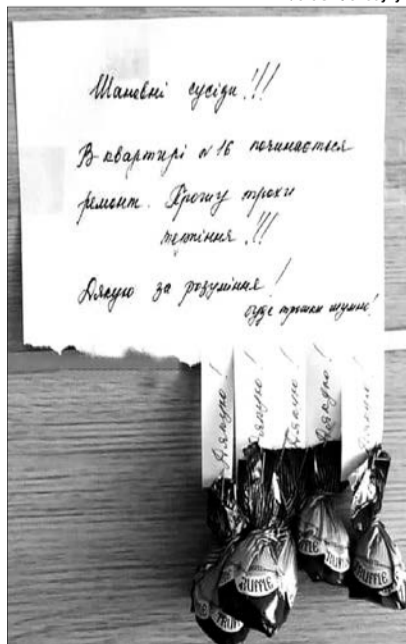 Шановні сусіди!!!
В квартирі №16 починається
ремонт. Прошу трохи
терпіння!!!
Дякую за розуміння!
буде трошки шумно!
Дякую!
Дякую!
Дякую!
Дякую!
Дякую!
TRUFFLE
TRUFFLE
TRUFFLE